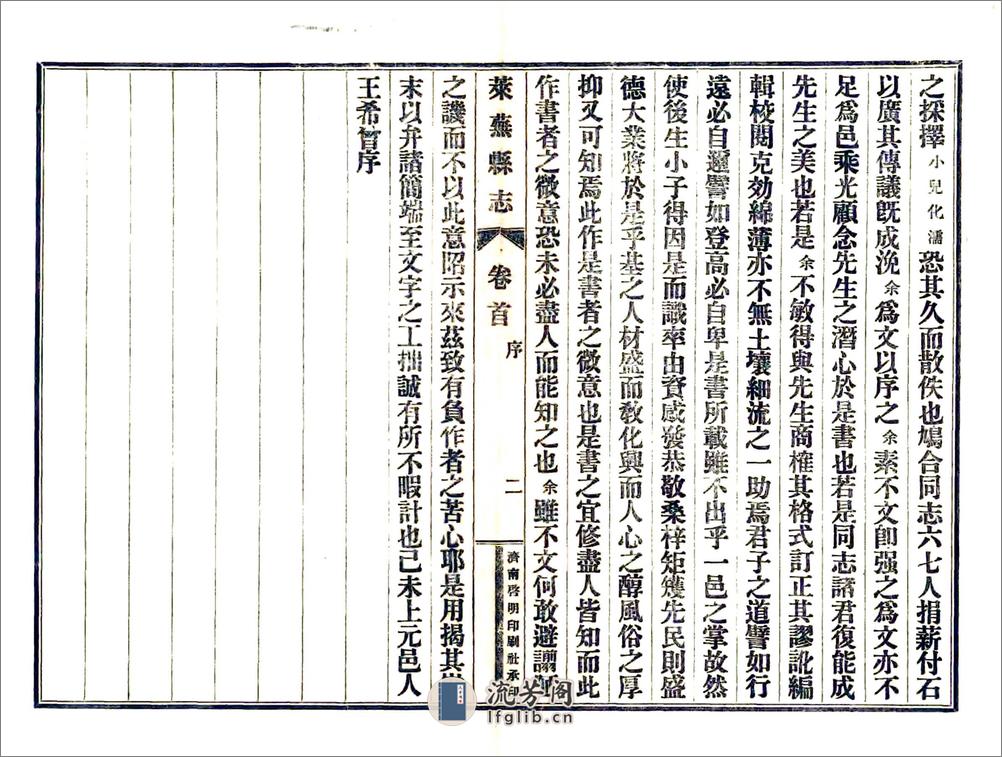 之採擇小兒化濡恐其久而散佚也鳩合同志六七人捐薪付石
以廣其傳議既成浼余爲文以序之余素不文卽强之爲文亦不
足爲邑乘光顧念先生之潛心於是書也若是同志諸君復能成
先生之美也若是余不敏得與先生商榷其格式訂正其謬訛編
輯校閱克効綿薄亦不無土壤細流之一助焉君子之道譬如行
遠必自邇譬如登高必自卑是書所載雖不出乎一邑之掌故然
使後生小子得因是而識率由資感發恭敬桑梓矩矱先民則盛
德大業將於是乎基之人材盛而教化興而人心之醇風俗之厚
抑又可知焉此作是書者之微意也是書之宜修盡人皆知而此
作書者之微意恐未必盡人而能知之也余雖不文何敢避謭陋
萊蕪縣志 卷首 序 二 濟南啓明印刷社承印
之譏而不以此意昭示來茲致有負作者之苦心耶是用揭其
末以弁諸簡端至文字之工拙誠有所不暇計也己未上元邑人
王希曾序
流芳阁
lfglib.cn